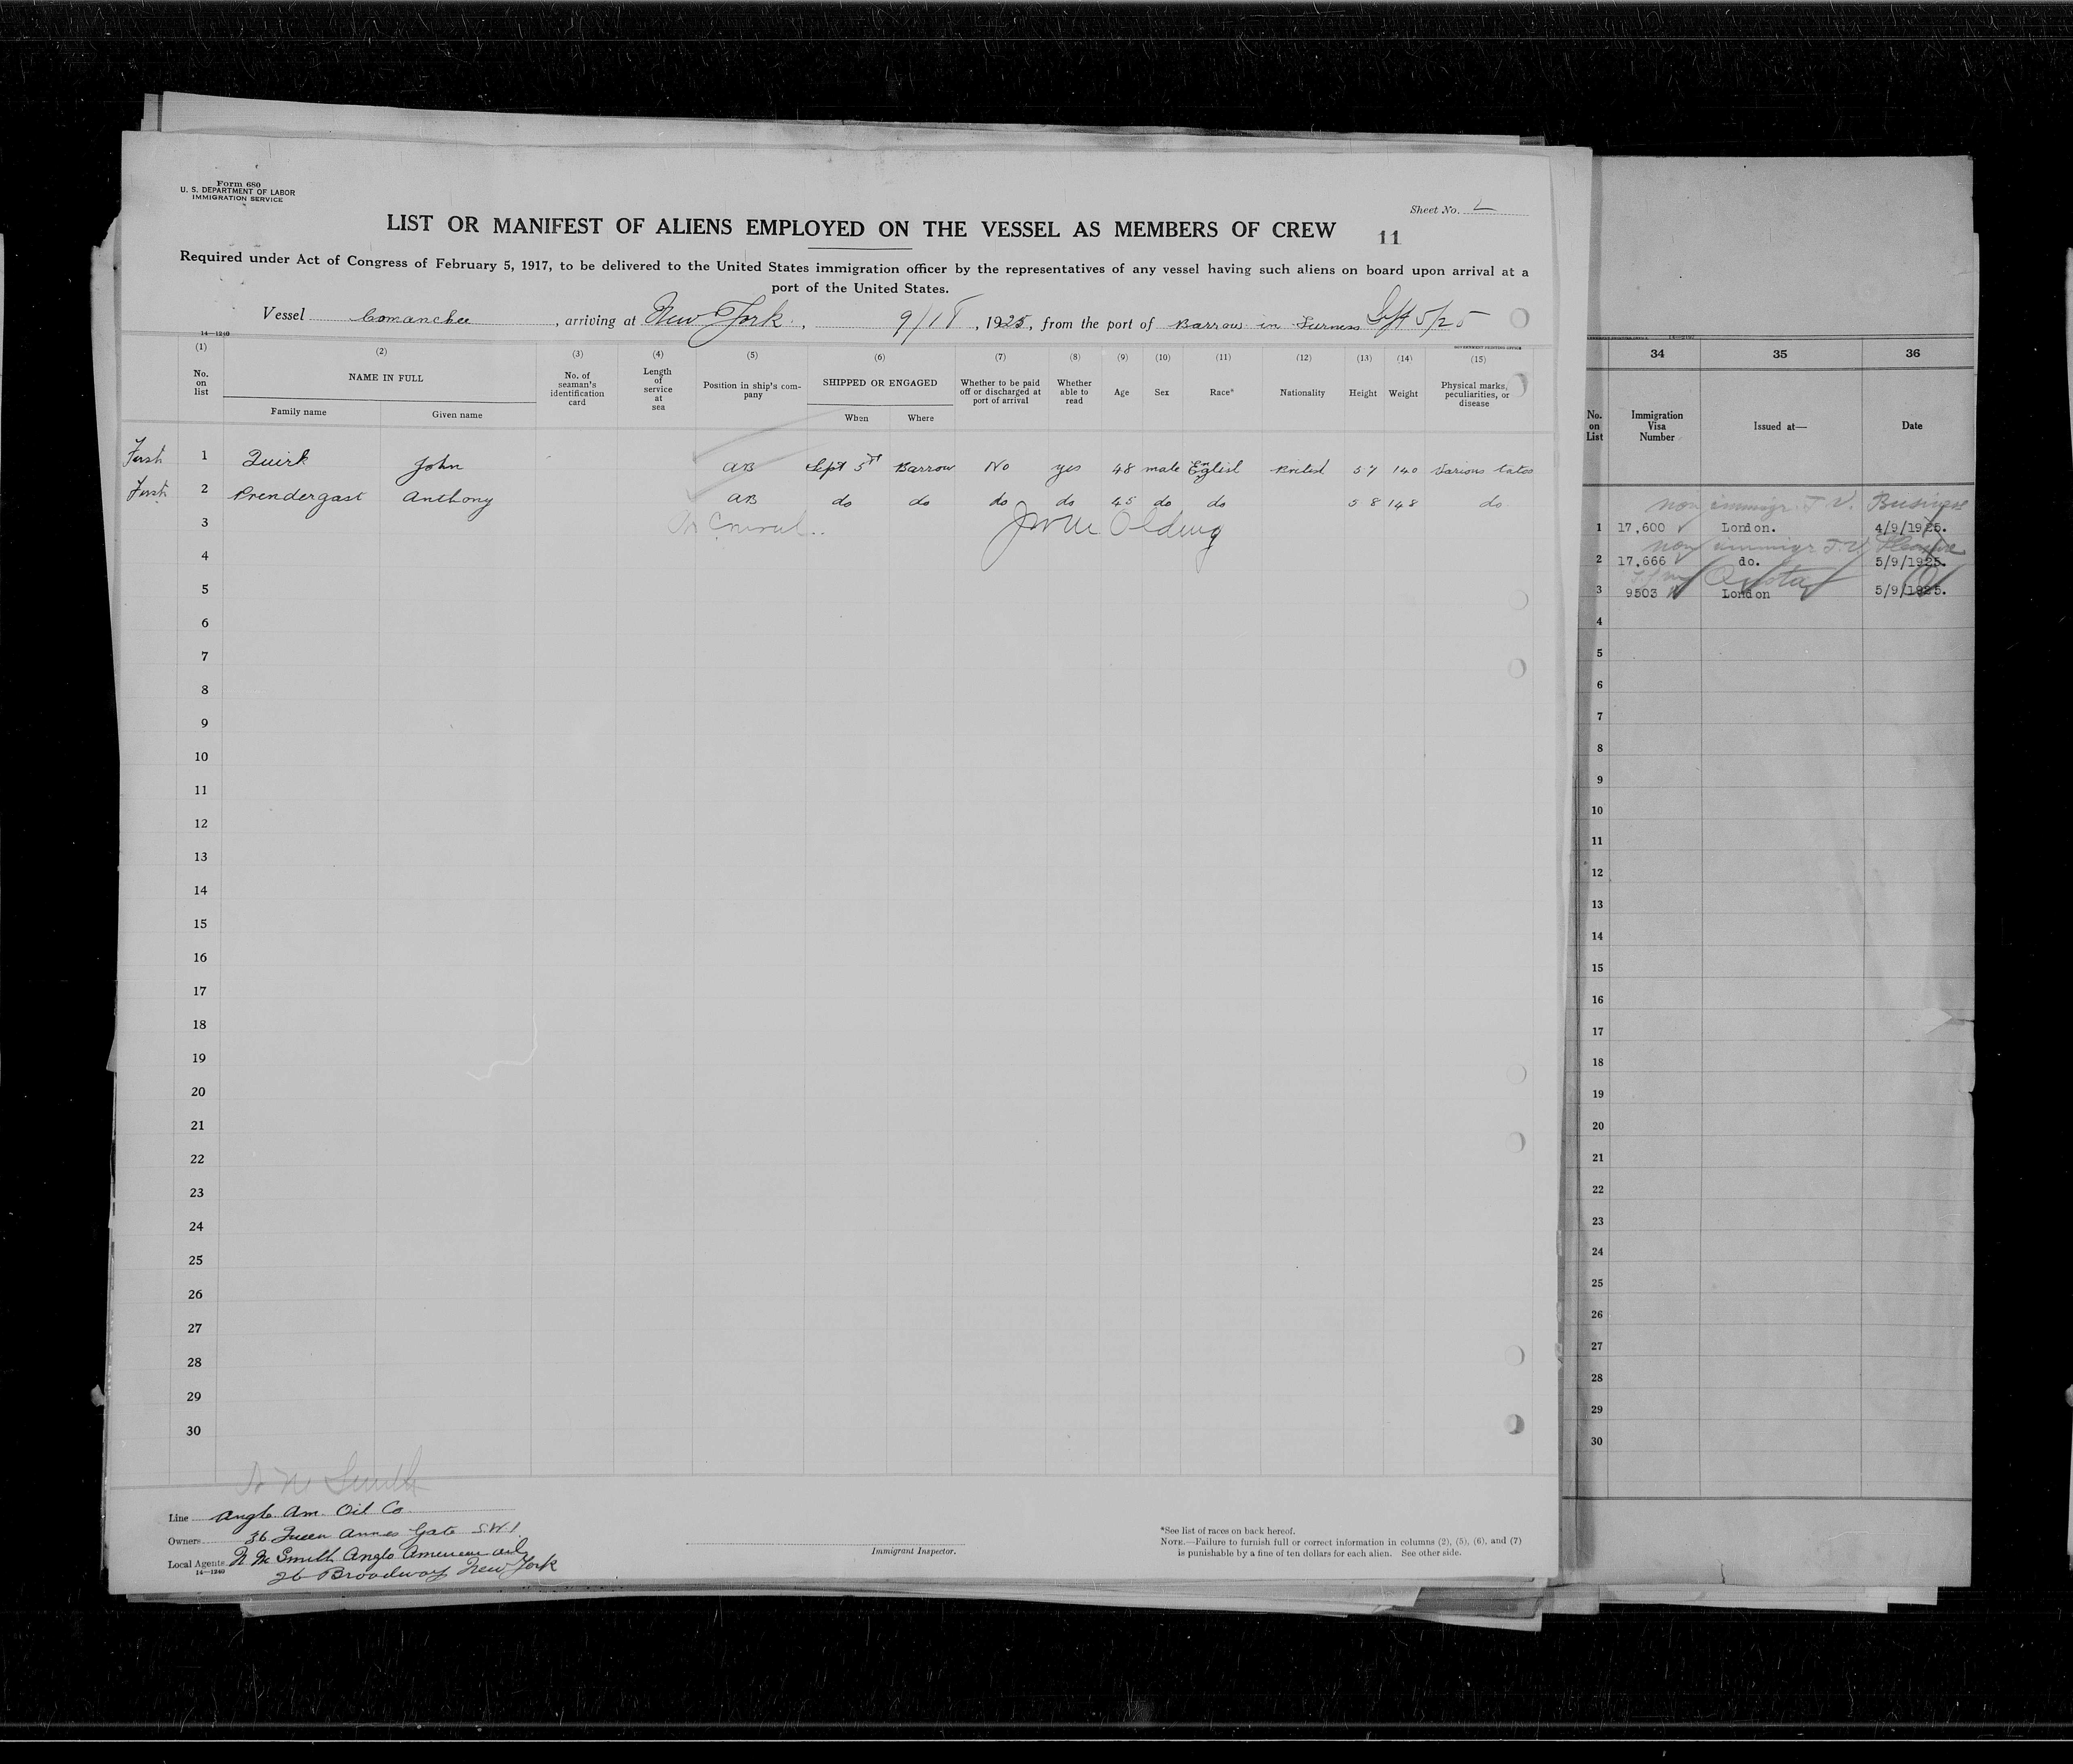 Form 680
U. S. DEPARTMENT OF LABOR
IMMIGRATION SERVICE
Sheet No.
LIST OR MANIFEST OF ALIENS EMPLOYED ON THE VESSEL AS MEMBERS OF CREW
11
Required under Act of Congress of February 5, 1917, to be delivered to the United States immigration officer by the representatives of any vessel having such aliens on board upon arrival at a
port of the United States.
Vessel Comanchee, arriving at New York, 9/18, 1925, from the port of Barrow in Furness Sept 5/25
14—1240
GOVERNMENT PRINTING OFFICE
(1) (2) (3) (4) (5) (6) (7) (8) (9) (10) (11) (12) (13) (14) (15)
No. on list
NAME IN FULL
Family name Given name
No. of seaman's identification card
Length of service at sea
Position in ship's company
SHIPPED OR ENGAGED
When Where
Whether to be paid off or discharged at port of arrival
Whether able to read
Age Sex Race* Nationality Height Weight
Physical marks, peculiarities, or disease
First 1 Quirk John AB Sept 5th Barrow No yes 48 male English British 5 7 140 Various tatoo
First 2 Prendergast Anthony AB do do do do 45 do do 5 8 148 do
3 Olding
4
5
6
7
8
9
10
11
12
13
14
15
16
17
18
19
20
21
22
23
24
25
26
27
28
29
30
Smith
Line Anglo Am. Oil Co
Owners 36 Queen Annes Gate S.W.1.
Local Agents N M Smith Anglo American Oil
14—1240
26 Broadway New York
Immigrant Inspector.
*See list of races on back hereof.
NOTE.—Failure to furnish full or correct information in columns (2), (5), (6), and (7)
is punishable by a fine of ten dollars for each alien. See other side.
34 35 36
No. on List
Immigration Visa Number
Issued at—
Date
non immigr T.V. Business
1 17,600 London. 4/9/1925.
non immigr T.V. Pleasure
2 17,666 do. 5/9/1925.
Quota
3 9503 London 5/9/1925.
4
5
6
7
8
9
10
11
12
13
14
15
16
17
18
19
20
21
22
23
24
25
26
27
28
29
30